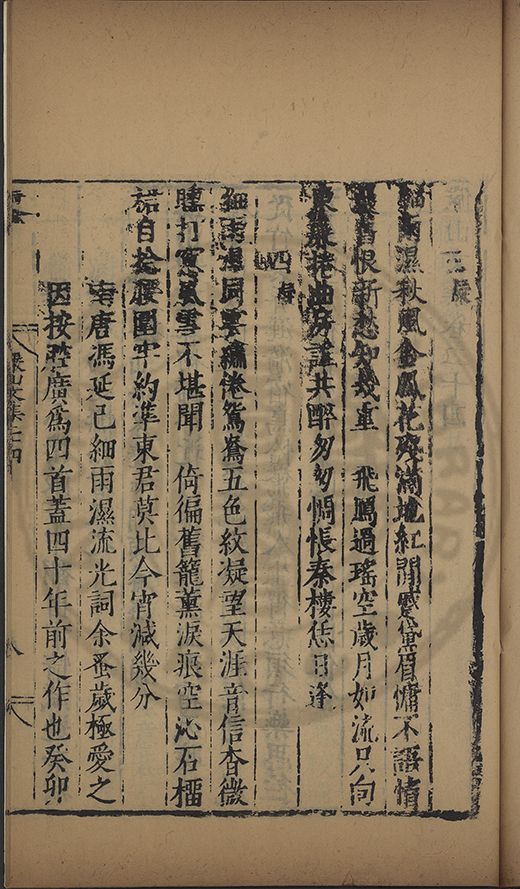 三
細雨濕秋風金鳳花殘滿地紅閒蹙黛眉慵不語情
舊恨新愁知幾重　飛鴈過瑤空歲月如流只向
東簾捲曲房誰共醉匆匆惆悵秦樓恁日逢
四
細雨濕同雲繡倦鴛鴦五色紋凝望天涯音信杳微
醺打窻風雪不堪聞　倚徧舊籠薰淚痕空沁石榴
裙自捻腰圍牢約準東君莫比今宵減幾分
南唐馮延己細雨濕流光詞余蚤歲極愛之
因按腔廣爲四首蓋四十年前之作也癸卯